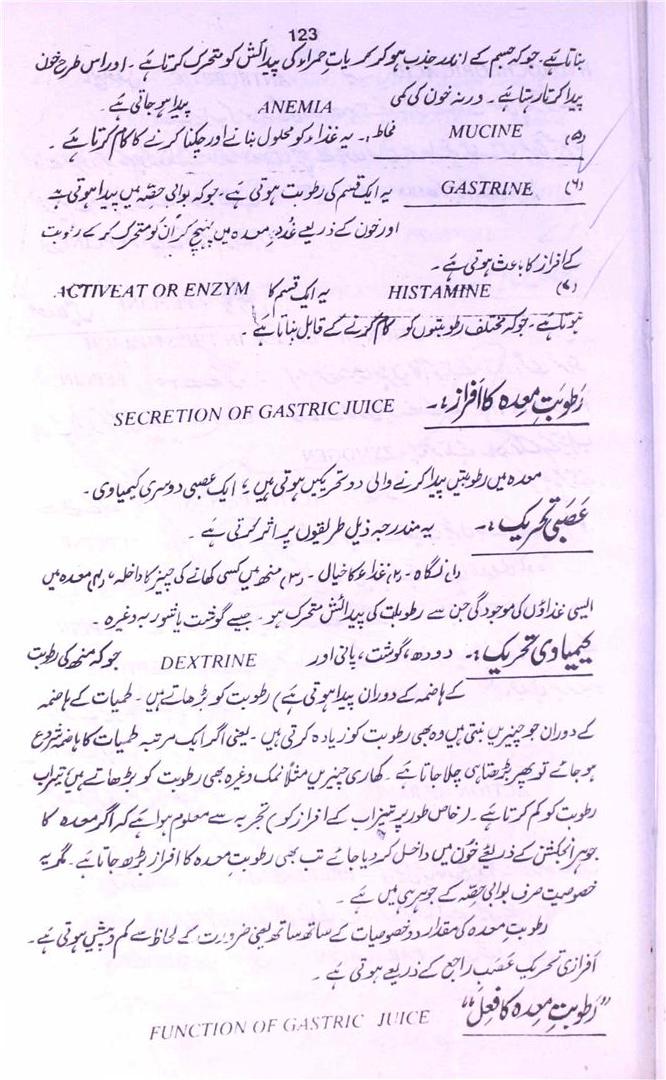 123
بناتا ہے۔ جو کہ جسم کے اندر جذب ہو کر کریاتِ حمراء کی پیدائش کو متحرک کرتا ہے۔ اور اس طرح خون
پیدا کرتا رہتا ہے۔ ورنہ خون کی کمی ANEMIA پیدا ہو جاتی ہے۔
(۵) MUCINE مخاط:۔ یہ غذاء کو محلول بنانے اور چکنا کرنے کا کام کرتا ہے۔
(۶) GASTRINE یہ ایک قسم کی رطوبت ہوتی ہے۔ جو کہ بوابی حصّہ میں پیدا ہوتی ہے
اور خون کے ذریعے غُددِ معدہ میں پہنچ کر ان کو متحرک کر کے رطوبت
کے افراز کا باعث ہوتی ہے۔
(۷) HISTAMINE یہ ایک قسم کا ACTIVEAT OR ENZYM
ہوتا ہے۔ جو کہ مختلف رطوبتوں کو کام کرنے کے قابل بناتا ہے۔
رَطوبَتِ معدہ کا اَفراز:۔ SECRETION OF GASTRIC JUICE
معدہ میں رطوبتیں پیدا کرنے والی دو تحریکیں ہوتی ہیں، ایک عصبی دوسری کیمیاوی۔
عَصَبی تحریک:۔ یہ مندرجہ ذیل طریقوں پر اثر کرتی ہے۔
(۱) نگاہ۔ (۲) غذاء کا خیال۔ (۳) منھ میں کسی کھانے کی چیز کا داخلہ، (۴) معدہ میں
ایسی غذاؤں کی موجودگی جن سے رطوبات کی پیدائش متحرک ہو۔ جیسے گوشت یا شوربہ وغیرہ۔
کیمیاوی تحریک:۔ دودھ، گوشت، پانی اور DEXTRINE جو کہ منھ کی رطوبت
کے ہاضمہ کے دوران پیدا ہوتی ہے) رطوبت کو بڑھاتے ہیں۔ لحمیات کے ہاضمہ
کے دوران جو چیزیں بنتی ہیں وہ بھی رطوبت کو زیادہ کرتی ہیں۔ یعنی اگر ایک مرتبہ لحمیات کا ہاضمہ شروع
ہو جائے تو پھر بڑھتا ہی چلا جاتا ہے۔ کھاری چیزیں مثلاً نمک وغیرہ بھی رطوبت کو بڑھاتے ہیں، تیزاب
رطوبت کو کم کرتا ہے۔ (خاص طور پر تیزاب کے افراز کو) تجربہ سے معلوم ہوا ہے کہ اگر معدہ کا
جوہر انجکشن کے ذریعے خُون میں داخل کر دیا جائے تب بھی رطوبتِ معدہ کا افراز بڑھ جاتا ہے۔ مگر یہ
خصوصیت صرف بوابی حصّہ کے جوہر ہی میں ہے۔
رطوبتِ معدہ کی مقدار و خصوصیات کے ساتھ ساتھ یعنی ضرورت کے لحاظ سے کم و بیش ہوتی ہے۔
اَفرازی تحریک عَصَبِ راجع کے ذریعے ہوتی ہے۔
"رَطوبَتِ معِدہ کا فِعل" FUNCTION OF GASTRIC JUICE